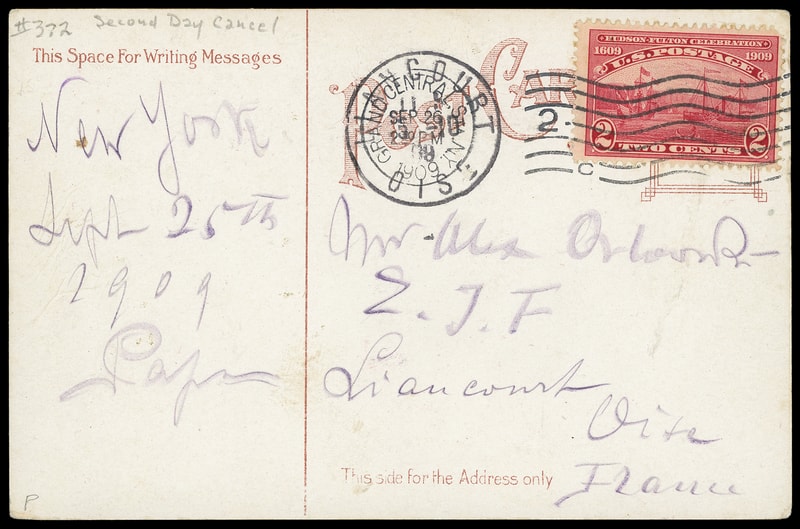 #372 Second Day Cancel
This Space For Writing Messages
New York
Sept 25th
1909
Papa
HUDSON-FULTON CELEBRATION
1609 1909
U.S. POSTAGE
2 TWO CENTS 2
LIANCOURT
OISE
GRAND CENTRAL STA. N.Y.
SEP
PM
1909
2
C
Mr Alex
E. I. F
Liancourt
Oise
France
This side for the Address only
P